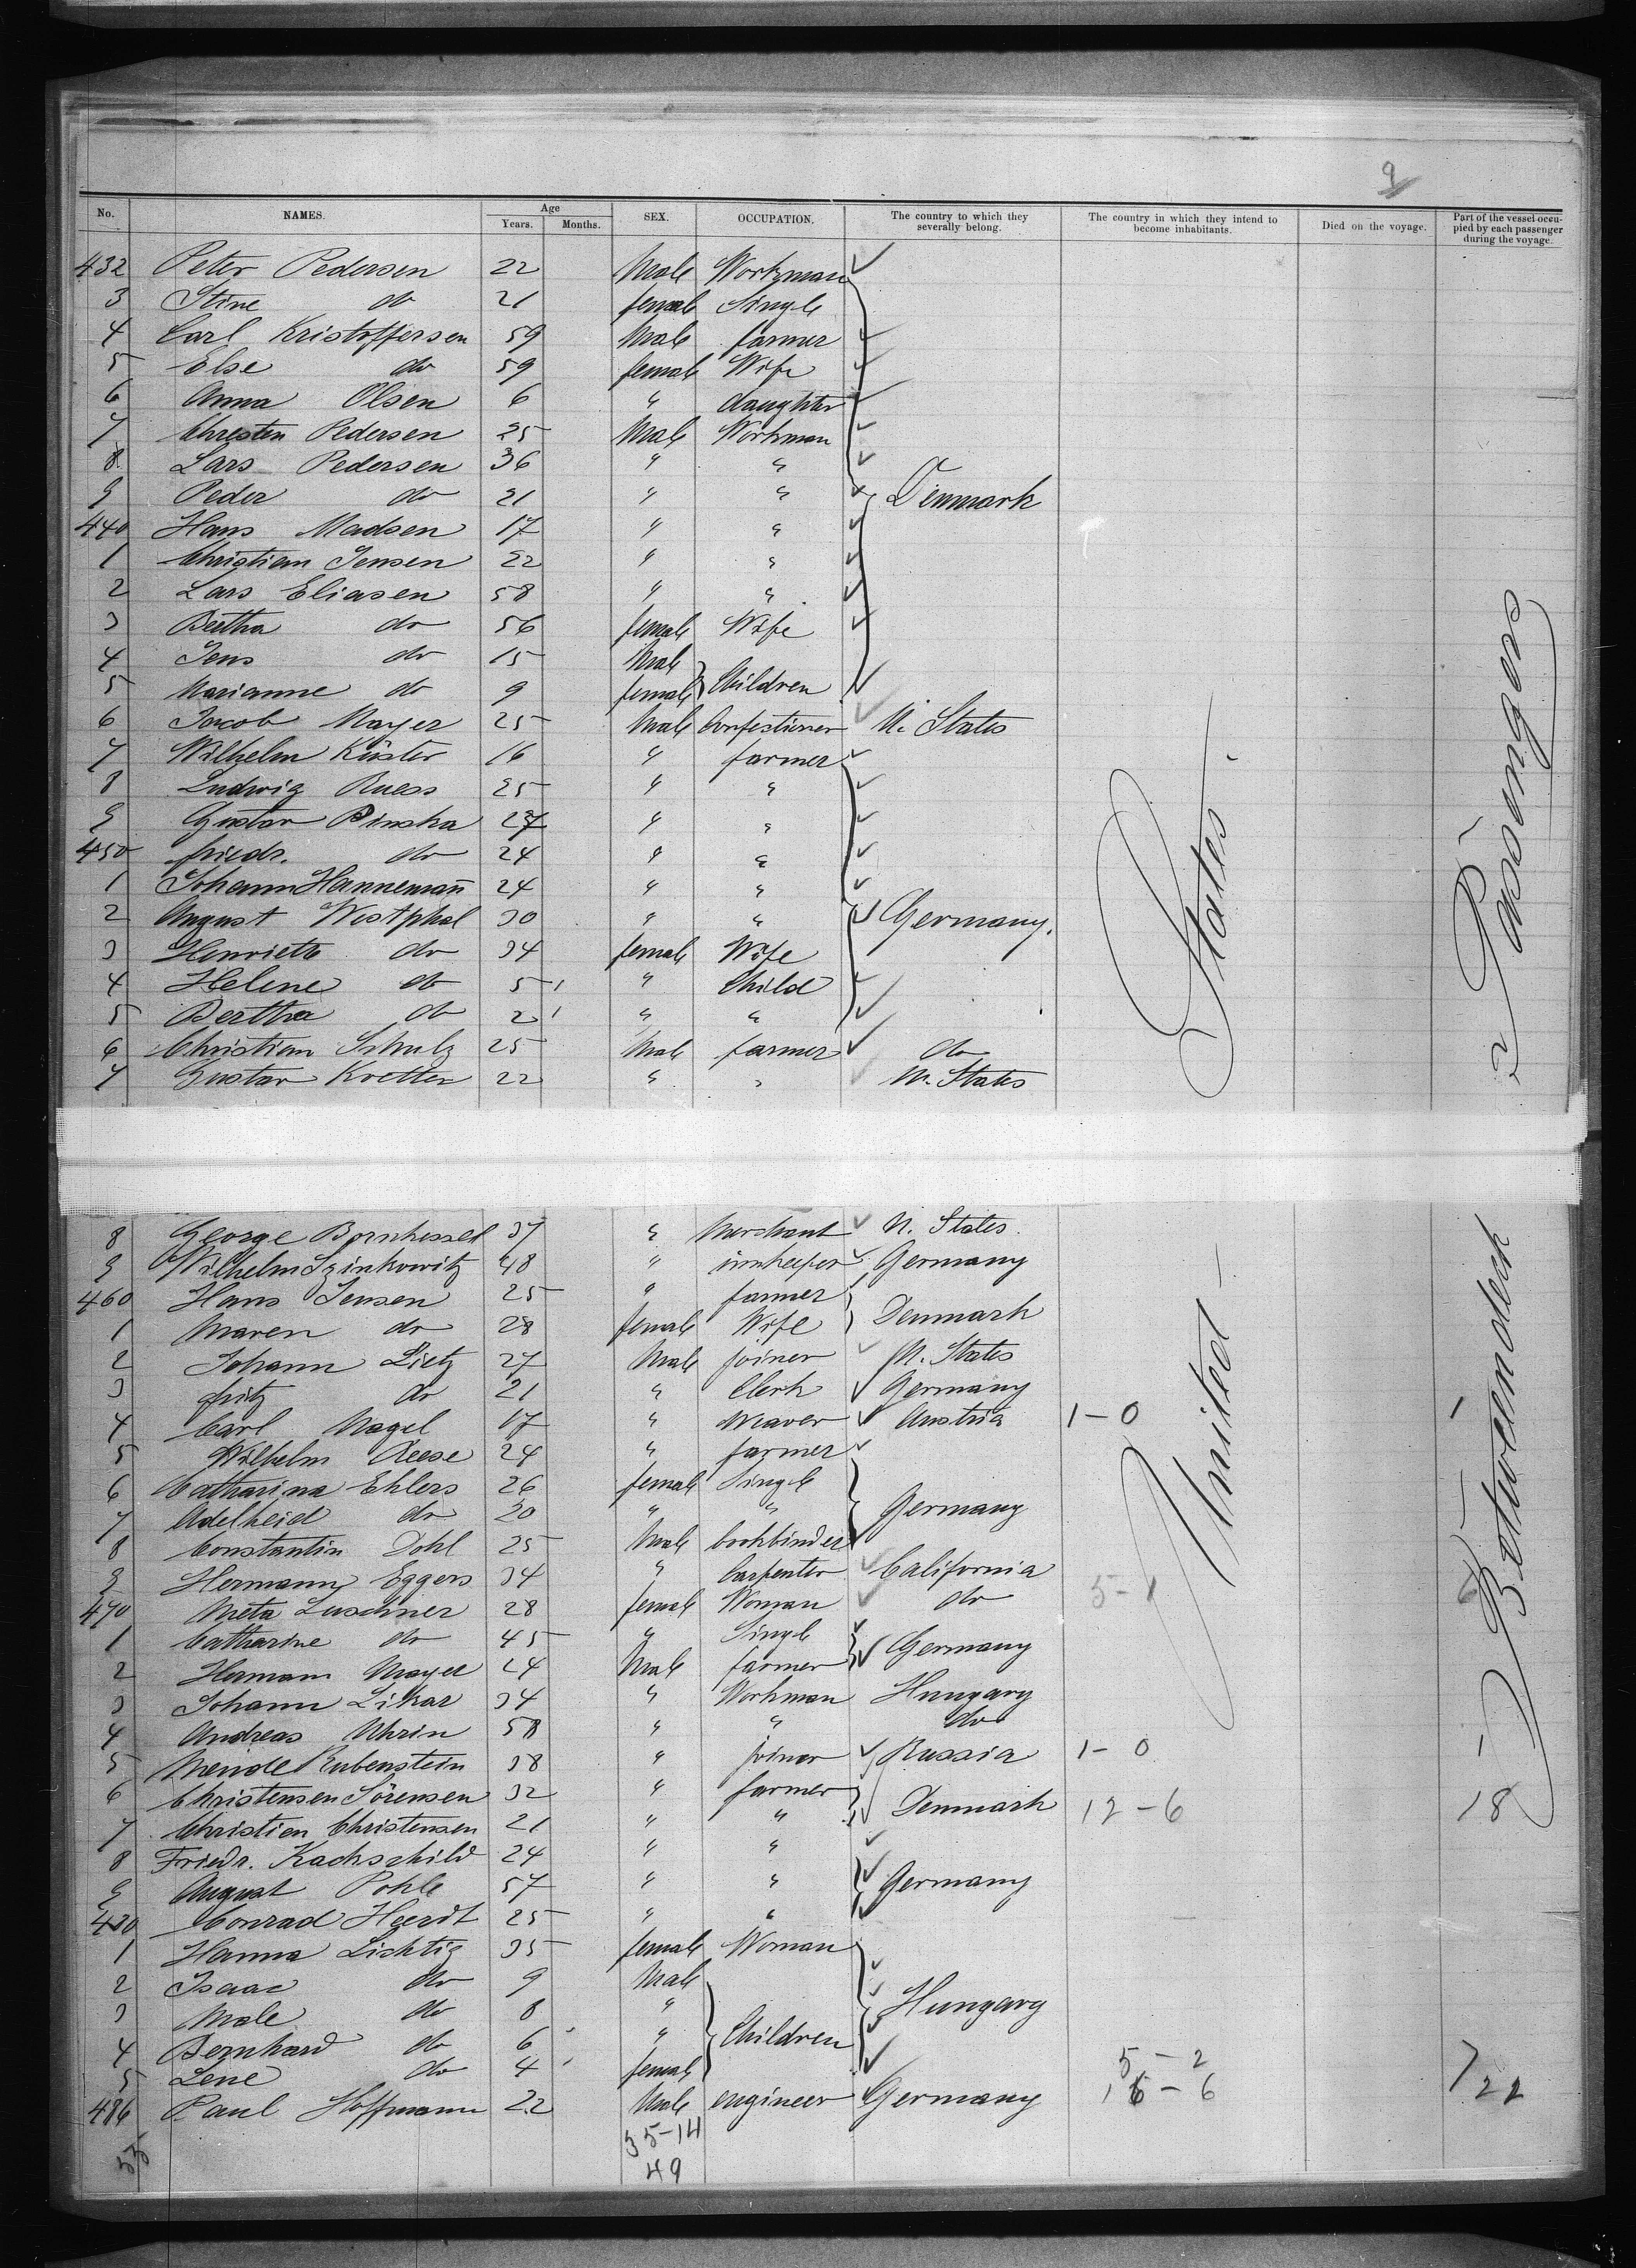 9
No. NAMES. Age Years. Months. SEX. OCCUPATION. The country to which they severally belong. The country in which they intend to become inhabitants. Died on the voyage. Part of the vessel occupied by each passenger during the voyage.
432 Peter Pedersen 22 Male Workman
3 Stine do 21 female Single
4 Carl Kristoffersen 59 Male farmer
5 Else do 59 female Wife
6 Anna Olsen 6 " daughter
7 Chresten Pedersen 25 Male Workman
8 Lars Pedersen 36 " "
9 Peder do 21 " " Denmark
440 Hans Madsen 17 " "
1 Christian Jensen 22 " "
2 Lars Eliasen 58 " "
3 Bertha do 56 female Wife
4 Jens do 15 Male
5 Marianne do 9 female Children
6 Jacob Mayer 25 Male Confectioner U. States
7 Wilhelm Küster 16 " farmer
8 Ludwig Ruess 25 " "
9 Gustav Binska 27 " "
450 friedr. do 24 " "
1 Johann Hannemann 24 " "
2 August Westphal 30 " " Germany.
3 Henriette do 34 female Wife
4 Helene do 5 " Child
5 Bertha do 2 " "
6 Christian Schulz 25 Male farmer do
7 Gustav Kretter 22 " " U. States
8 George Bornhessel 37 " Merchant U. States.
9 Wilhelm Szinkowitz 48 " innkeeper Germany
460 Hans Jensen 25 " farmer
1 Maren do 28 female Wife Denmark
2 Johann Lietz 27 Male joiner U. States
3 fritz do 21 " Clerk Germany
4 Carl Nagel 17 " Weaver Austria 1-0
5 Wilhelm Reese 24 " farmer
6 Catharina Ehlers 26 female Single
7 Adelheid do 20 " " Germany
8 Constantin Dohl 25 Male bookbinder
9 Hermann Eggers 34 " Carpenter California
470 Meta Luschner 28 female Woman do 5-1
1 Catharine do 45 " Single
2 Hermann Mayer 24 Male farmer Germany
3 Johann Likar 34 " Workman Hungary
4 Andreas Uhrin 58 " " do
5 Mendel Rubenstein 38 " joiner Russia 1-0
6 Christensen Sörensen 32 " farmer
7 Christian Christensen 21 " " Denmark 12-6 18
8 Friedr. Kachschild 24 " "
9 August Pohle 57 " " Germany
480 Conrad Heerdt 25 " "
1 Hanna Lichtig 35 female Woman
2 Isaac do 9 Male
3 Male do 8 " Hungary
4 Bernhard do 6 " Children
5 Lene do 4 female 5-2
486 Paul Hoffmann 22 Male engineer Germany 16-6 22
55 35-14
49
United States
Betweendeck Passengers